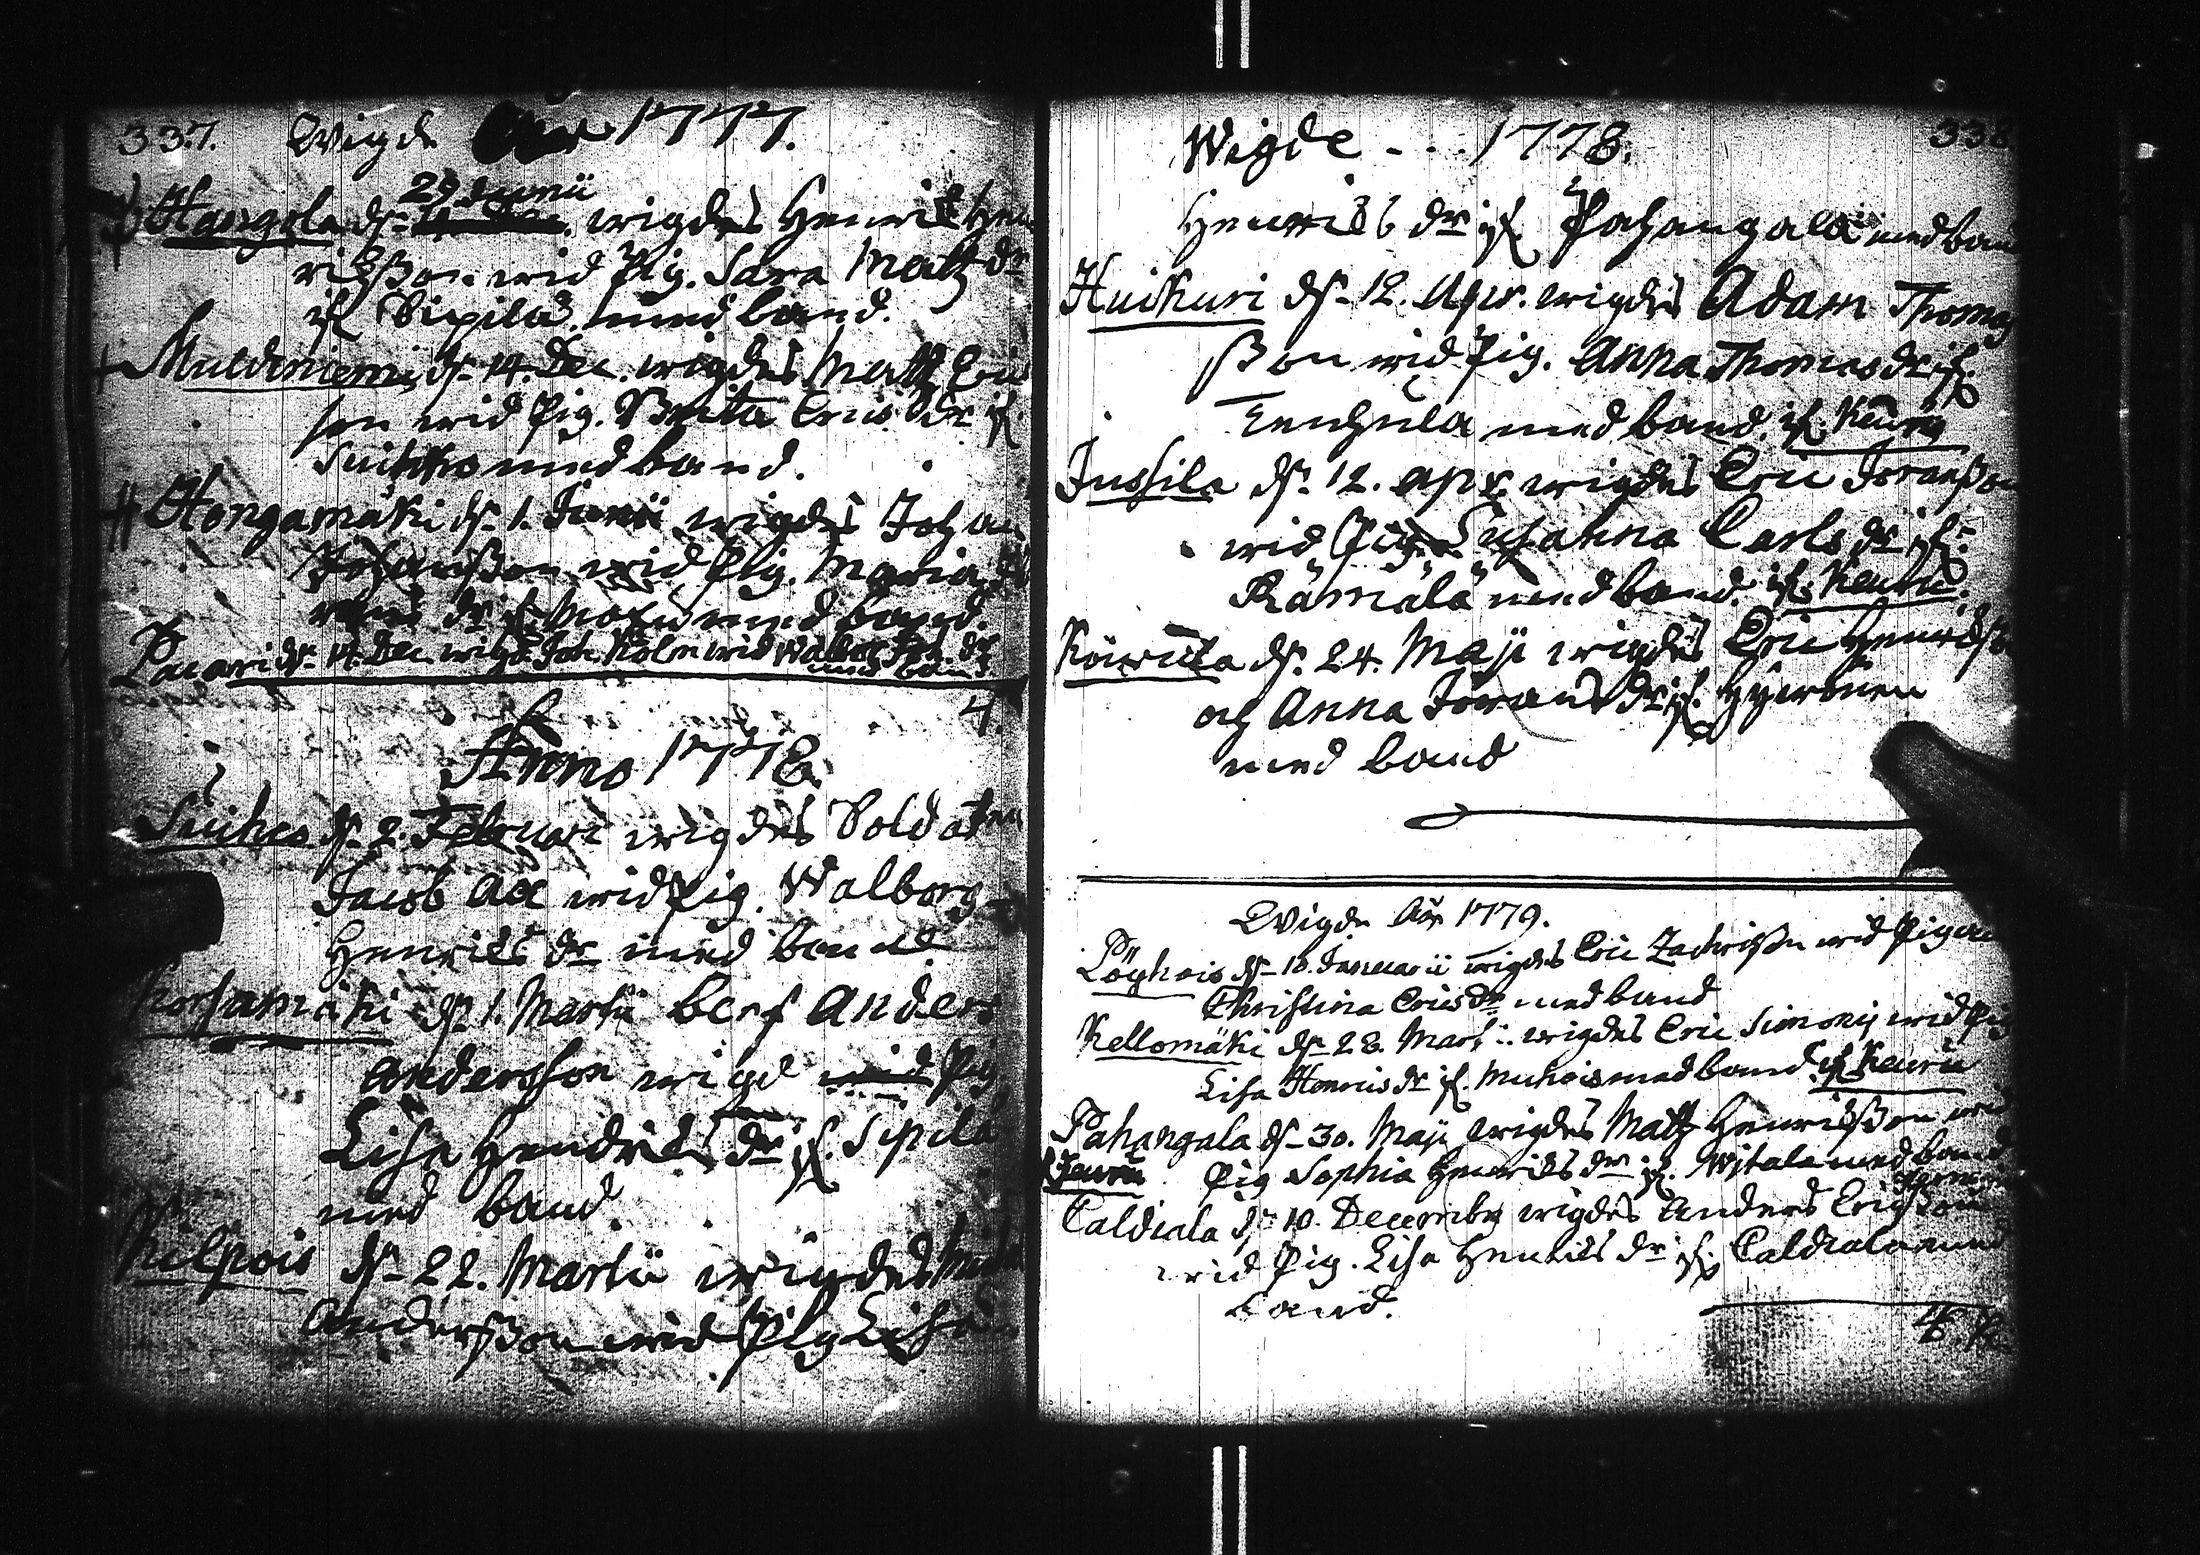 337. Wigde 1777.
Hangola d. 29 Junii wigdes Henric Hen
ricßon wid Pig. Sara Matz dr
if. Sipilä med band.
Muldiniemi d. 14. Dec. wigdes Matz Eric
son wid Pig. Brita Erics dr if.
med band.
Hongamäki d. 1. Junii wigdes Johan
Johanßon wid Pig. Maria
dr if. med band.
d. 14. Dec. Joh. wid Walbor Joh. dr
med band.
4.
Anno 1778.
Suihco d. 2. Februari wigdes Soldaten
Jacob Ax wid Pig. Walborg
Henrics dr med band
Korsamäki d. 1. Martii Anders
Andersson wigd wid Pig
Lisa Hendrics dr if. Sipilä
med band.
Kilpois d. 22. Martii wigdes
Anderßon wid Pig Lisa
Wigde - - - 1778. 338
Henrics dr if Pahangala med ban
Huikuri d. 12. Apr. wigdes Adam Thomas
ßon wid Pig. Anna Thomas dr if.
med band. if. Keuru
Jussila d. 12. apr. wigdes Eric Joranßon
wid Pig. Susanna Carls dr if.
Rämälä med band. if. Keuru.
d. 24. Maji wigdes Eric Henricsso
och Anna Jörans dr if. Hyvönen
med band
Wigde År 1779.
Löyhois d. 10. Januarii wigdes Eric Zachrißon wid Pigan
Christina Erics dr med band
Kellomäki d. 28. Marti wigdes Eric Simonis wid Pig
Lisa Henrics dr if. Muhois med band if Keuru
Pahangala d. 30. Maji wigdes Matz Henricßon wid
Keuru Pig Sophia Henrics dr if. Witala med band
Caldiala d. 10. Decembr wigdes Anders Ericßon
wid Pig. Lisa Henrics dr if. Caldiala med
band.
4 P.